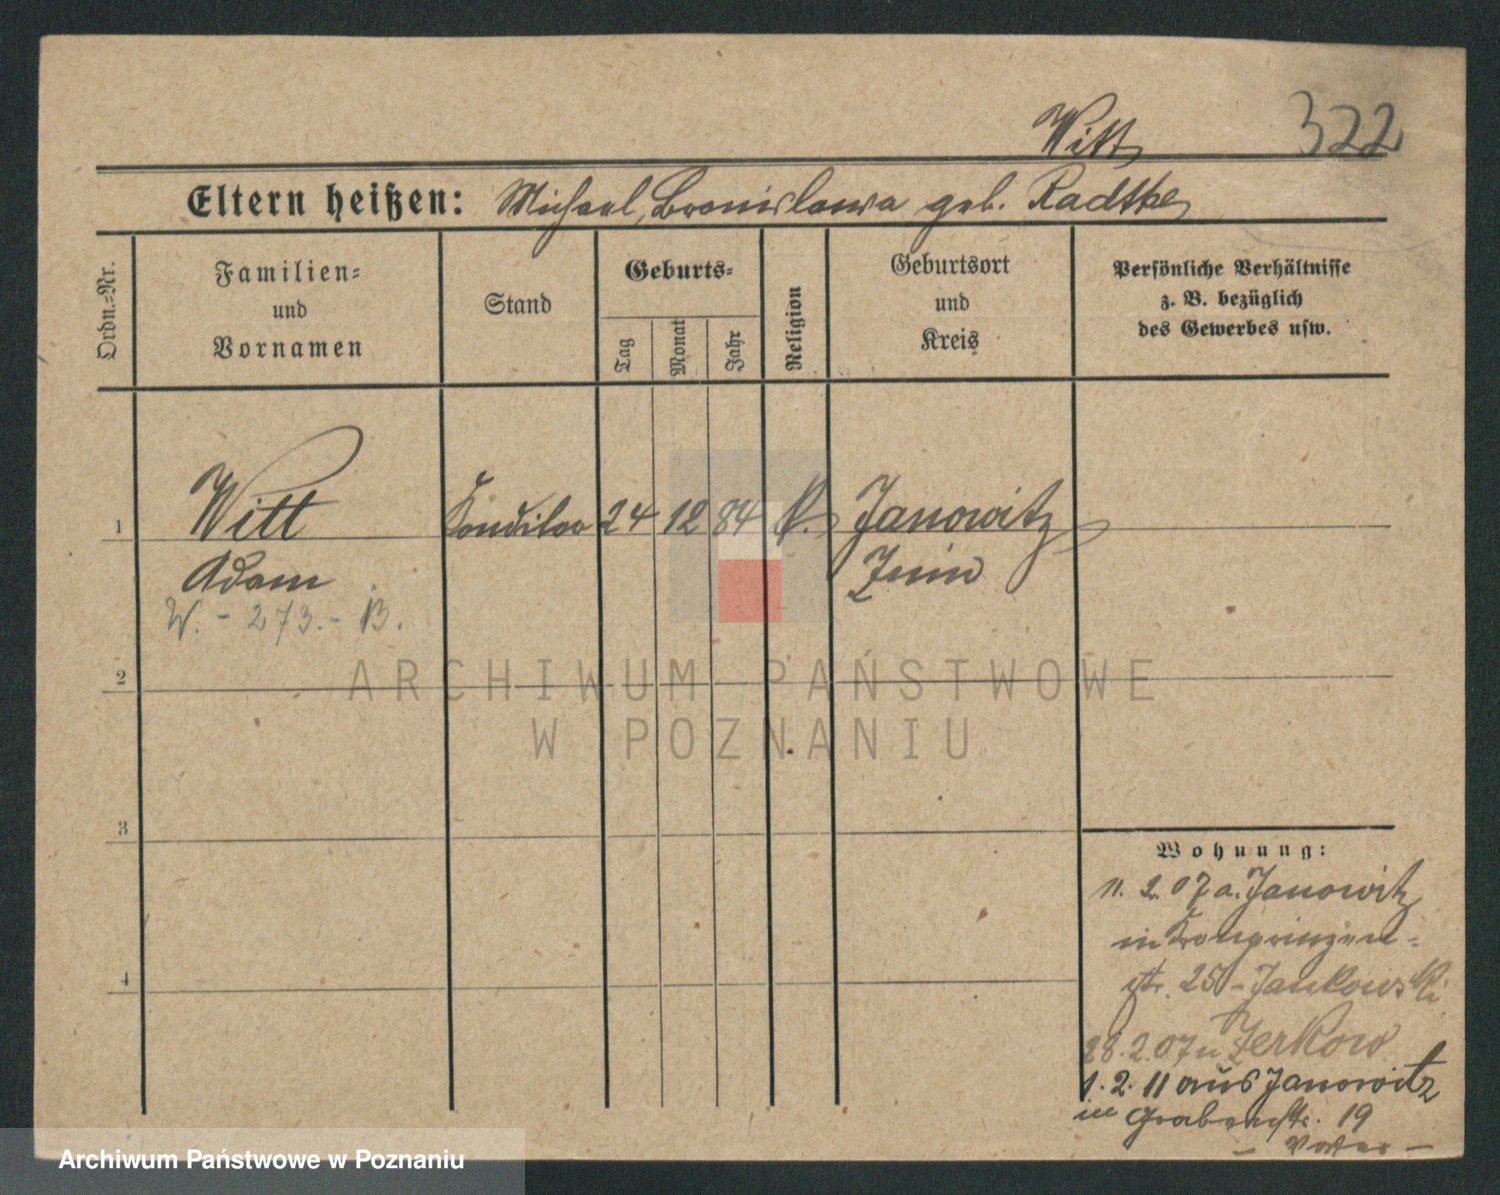 Witt 322
Eltern heißen: Michael, Bronislawa geb. Radtke
Ordn.=Nr.
Familien=
und
Vornamen
Stand
Geburts=
Tag
Monat
Jahr
Religion
Geburtsort
und
Kreis
Persönliche Verhältnisse
z. B. bezüglich
des Gewerbes usw.
1 Witt Konditor 24 12 84 k. Janowitz
Adam Znin
W. - 273. - B.
2
3
4
Wohnung:
11. 2. 07 a. Janowitz
in Kronprinzen=
str. 25 - Jankowski
28. 2. 07 n Zerkow
1. 2. 11 aus Janowitz
in Grabenstr. 19
ARCHIWUM PAŃSTWOWE
W POZNANIU
Archiwum Państwowe w Poznaniu